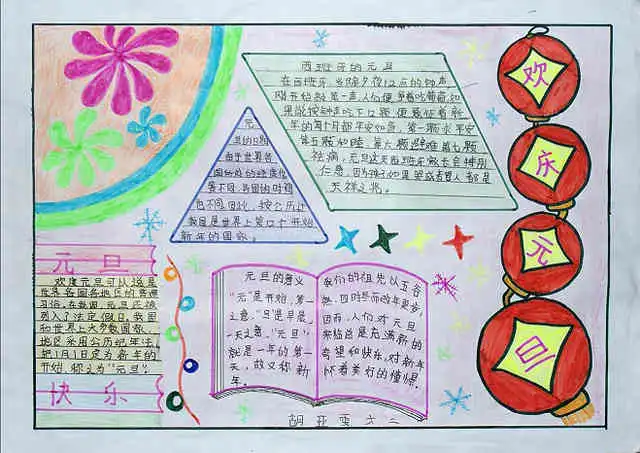 西班牙的元旦
在西班牙,当除夕夜12点的钟声
刚开始敲第一声,人们便争着吃葡萄,如
果能按钟声吃下12颗,便象征着新
年的每个月都平安如意,第一颗求平安
第五颗和睦,第六颗避难,第七颗
祛病,元旦这天西班牙家长会特别
仁慈,因为孩子如果哭或者骂人都是
不祥之兆。
元
旦的日期
由于世界各
国所处的经度位
置不同,各国的时间
也不同,因此,按公历计
我国是世界上第12个开始
新年的国家。
元旦
欢度元旦可以说是
世界各国各地区的普遍
习俗,在我国,元旦已被
列入了法定假日,我国
和世界上大多数国家、
地区采用公历纪年法,
把1月1日定为新年的
开始,称之为“元旦”。
快乐
元旦的意义
“元”是开始,第一
之意,“旦”是早晨,
一天之意,“元旦”,
就是一年的第一
天,故又称新
年。
我们的祖先以五谷
因而,人们对元旦
来临总是充满新的
希望和快乐,对新年
怀着美好的憧憬。
欢
庆
元
旦
胡亚雯